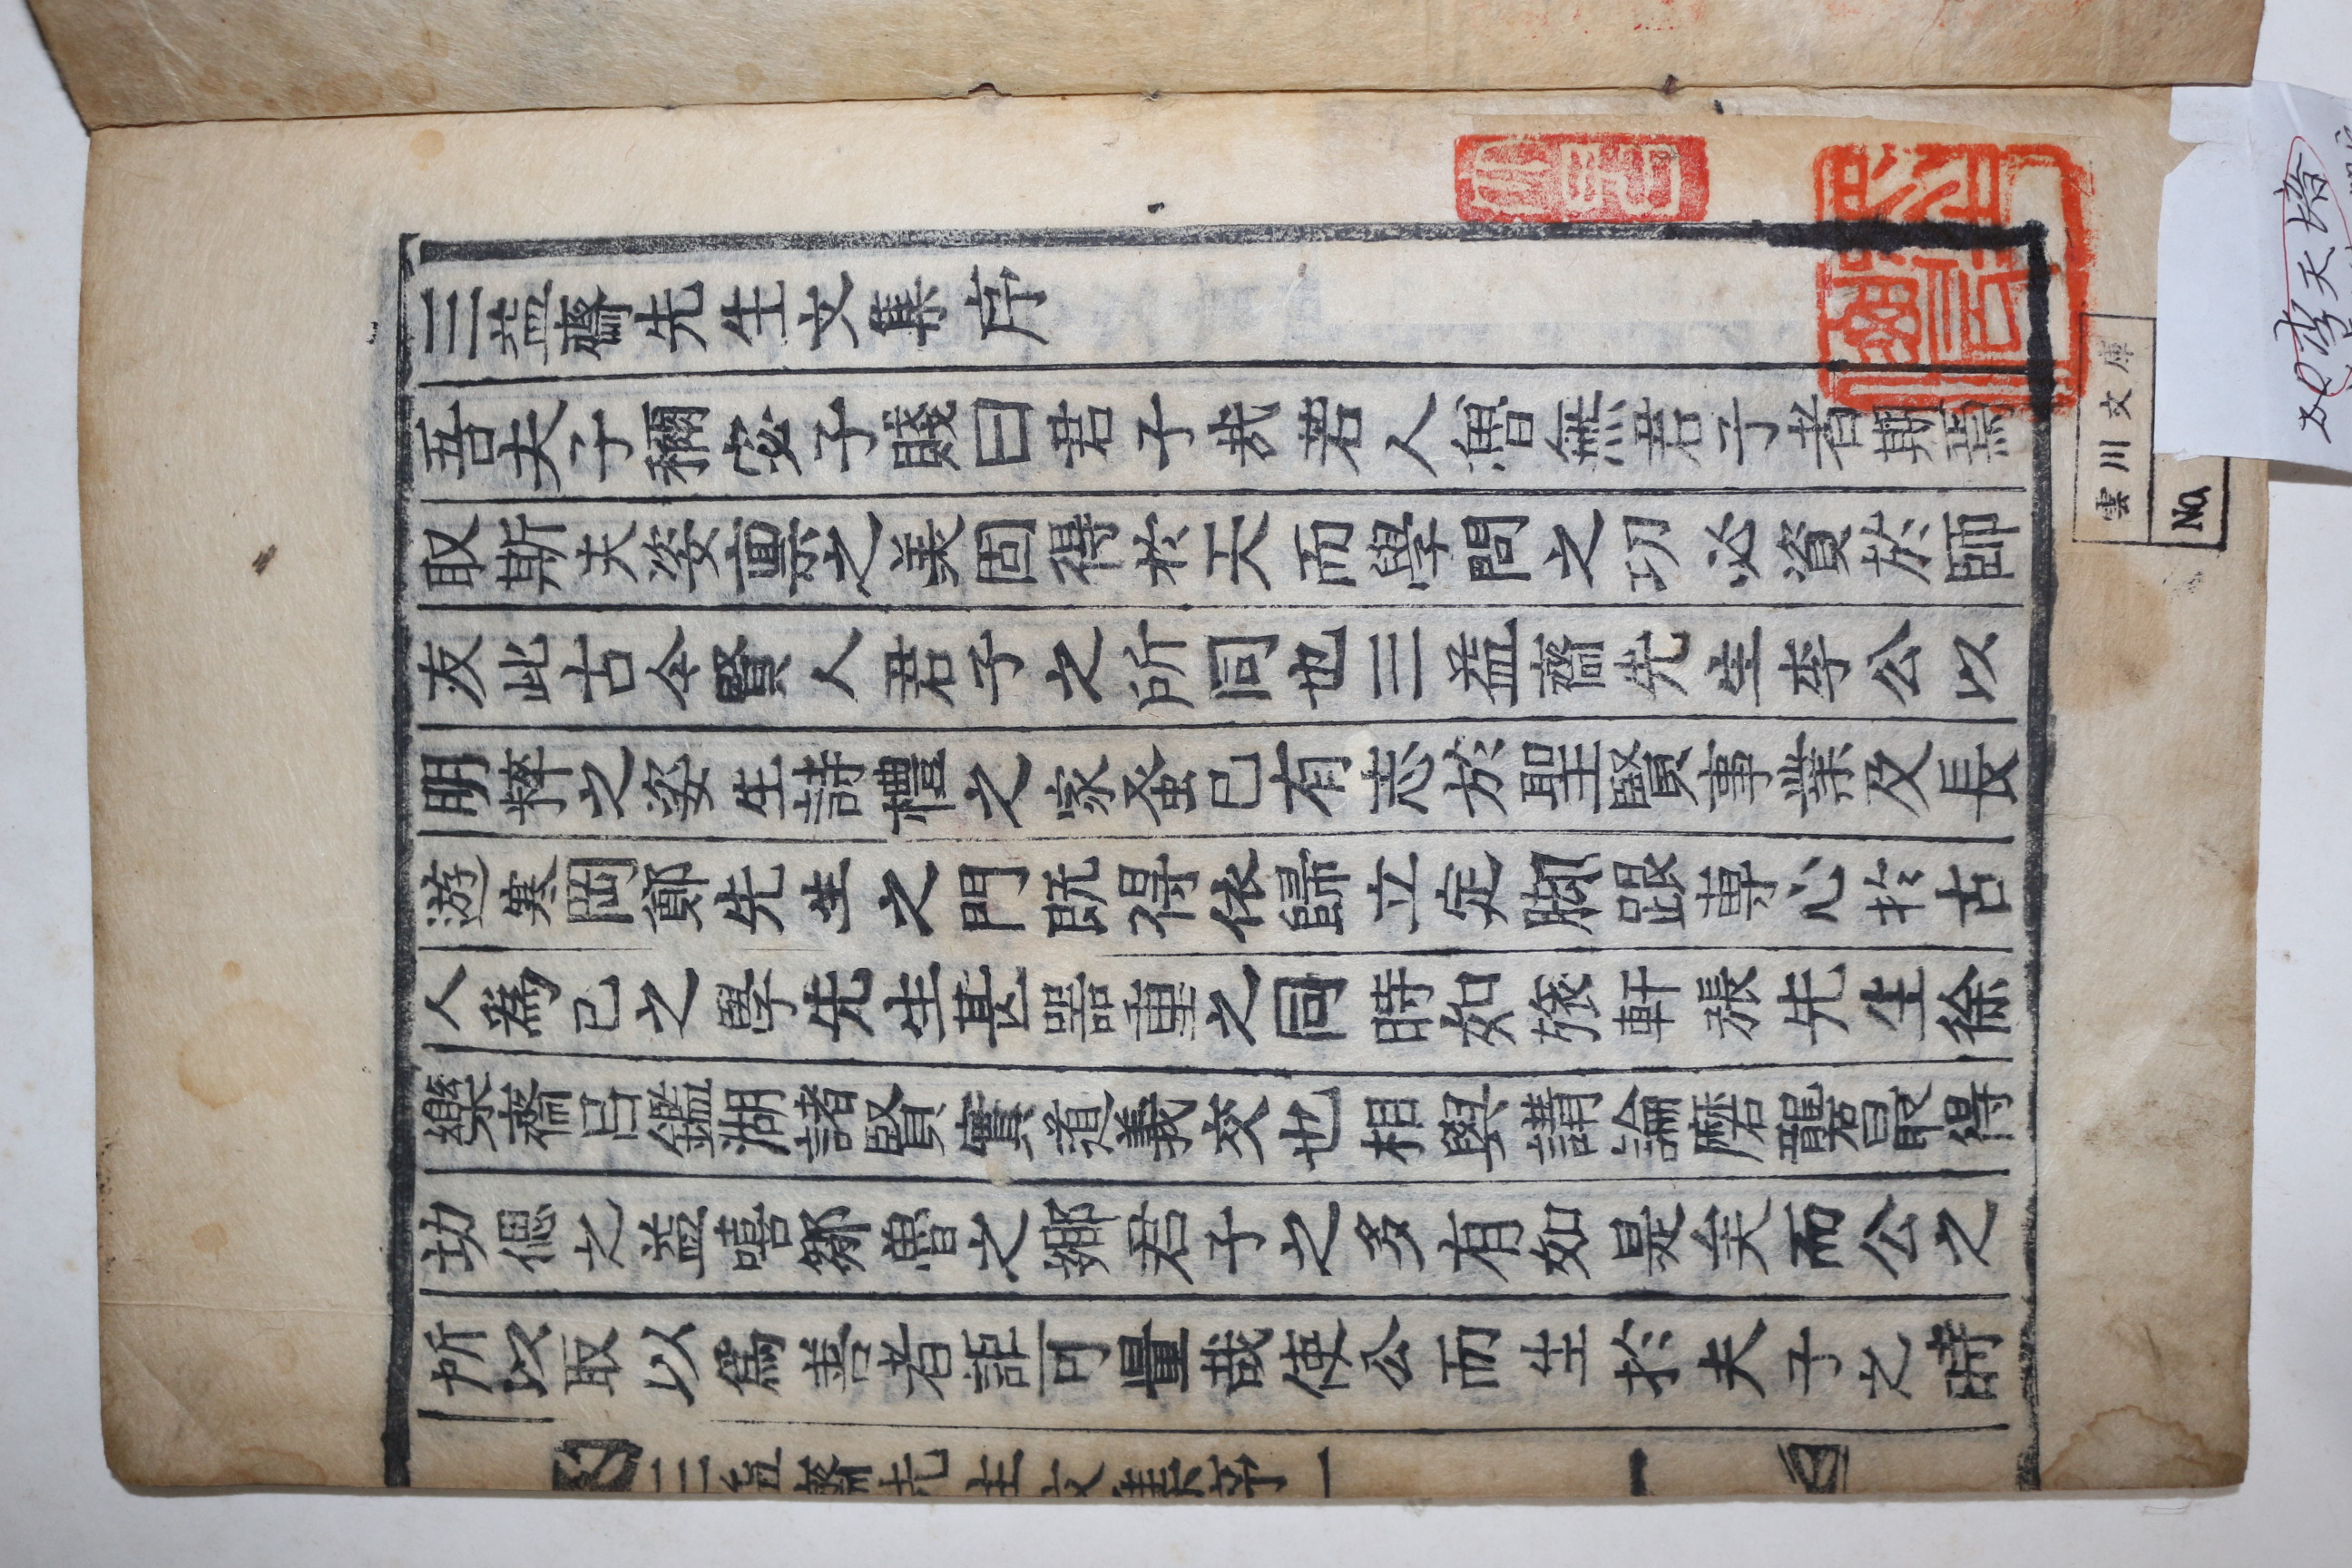 三益齋先生文集序
吾夫子稱宓子賤曰君子㢤若人魯無君子者斯焉
取斯夫姿禀之美固得於天而學問之功必資於師
友此古今賢人君子之所同也三益齋先生李公以
明粹之姿生詩禮之家蚤已有志於聖賢事業及長
遊寒岡鄭先生之門既得依歸立定脚跟專心於古
人爲己之學先生甚噐重之同時如旅軒張先生徐
樂齋呂鑑湖諸賢實道義交也相與講論磨礲最得
切偲之益嘻鄒魯之鄕君子之多有如是矣而公之
所以取以爲善者詎可量哉使公而生於夫子之時
三益齋先生文集序一
一
雲川文庫
No.
李天培